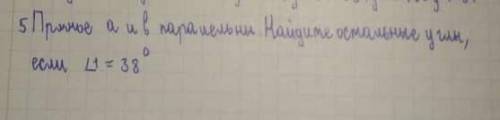 5 Прямое а и в паралельни Найдите остальные углы,
если ∠1 = 38°